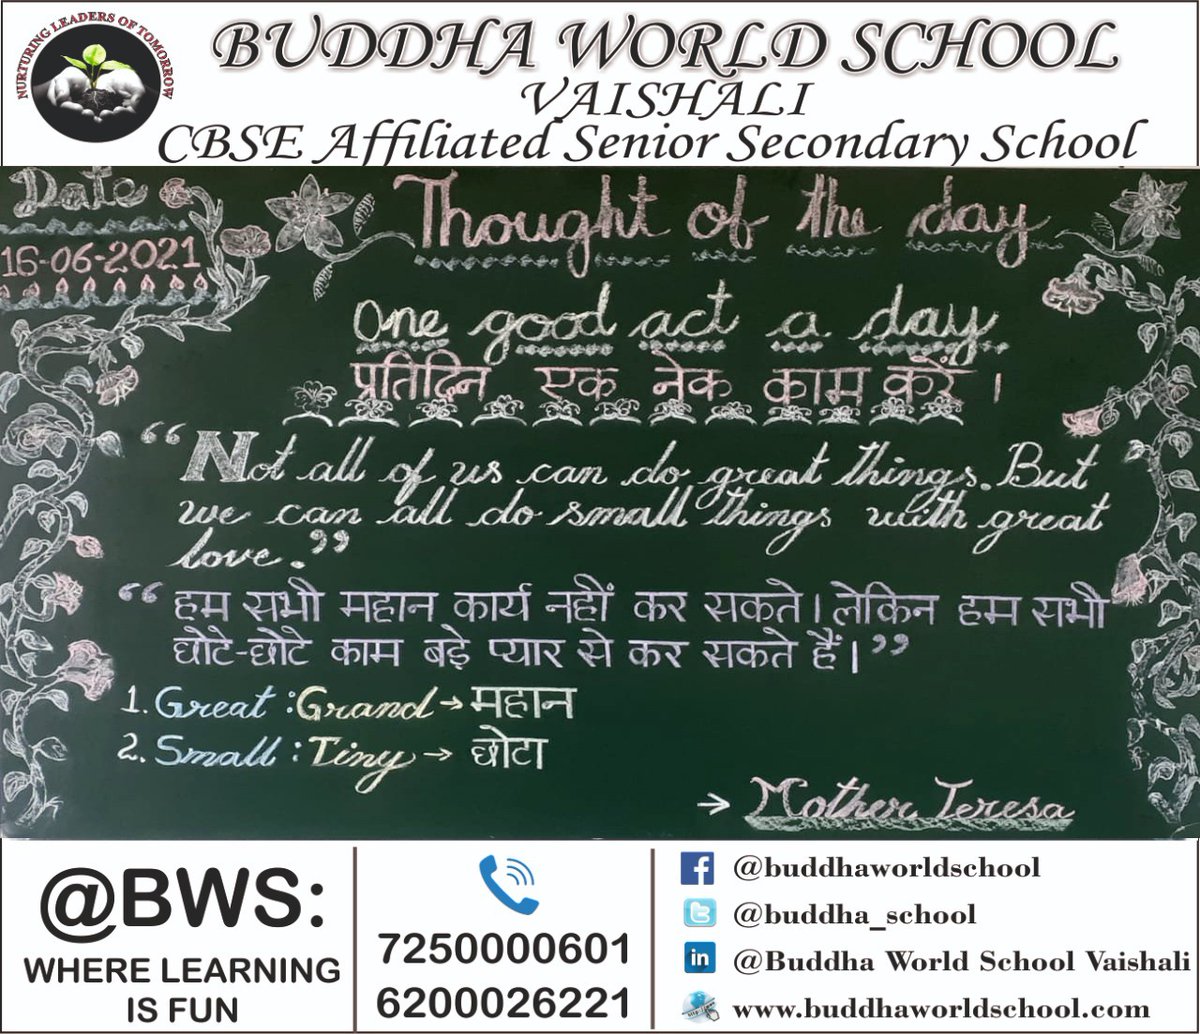 NURTURING LEADERS OF TOMORROW
BUDDHA WORLD SCHOOL
VAISHALI
CBSE Affiliated Senior Secondary School
Date
16-06-2021
Thought of the day
One good act a day
प्रतिदिन एक नेक काम करें ।
“Not all of us can do great things. But
we can all do small things with great
love.”
“हम सभी महान कार्य नहीं कर सकते। लेकिन हम सभी
छोटे-छोटे काम बड़े प्यार से कर सकते हैं।”
1. Great : Grand → महान
2. Small : Tiny → छोटा
→ Mother Teresa
@BWS:
WHERE LEARNING
IS FUN
7250000601
6200026221
@buddhaworldschool
@buddha_school
@Buddha World School Vaishali
www.buddhaworldschool.com